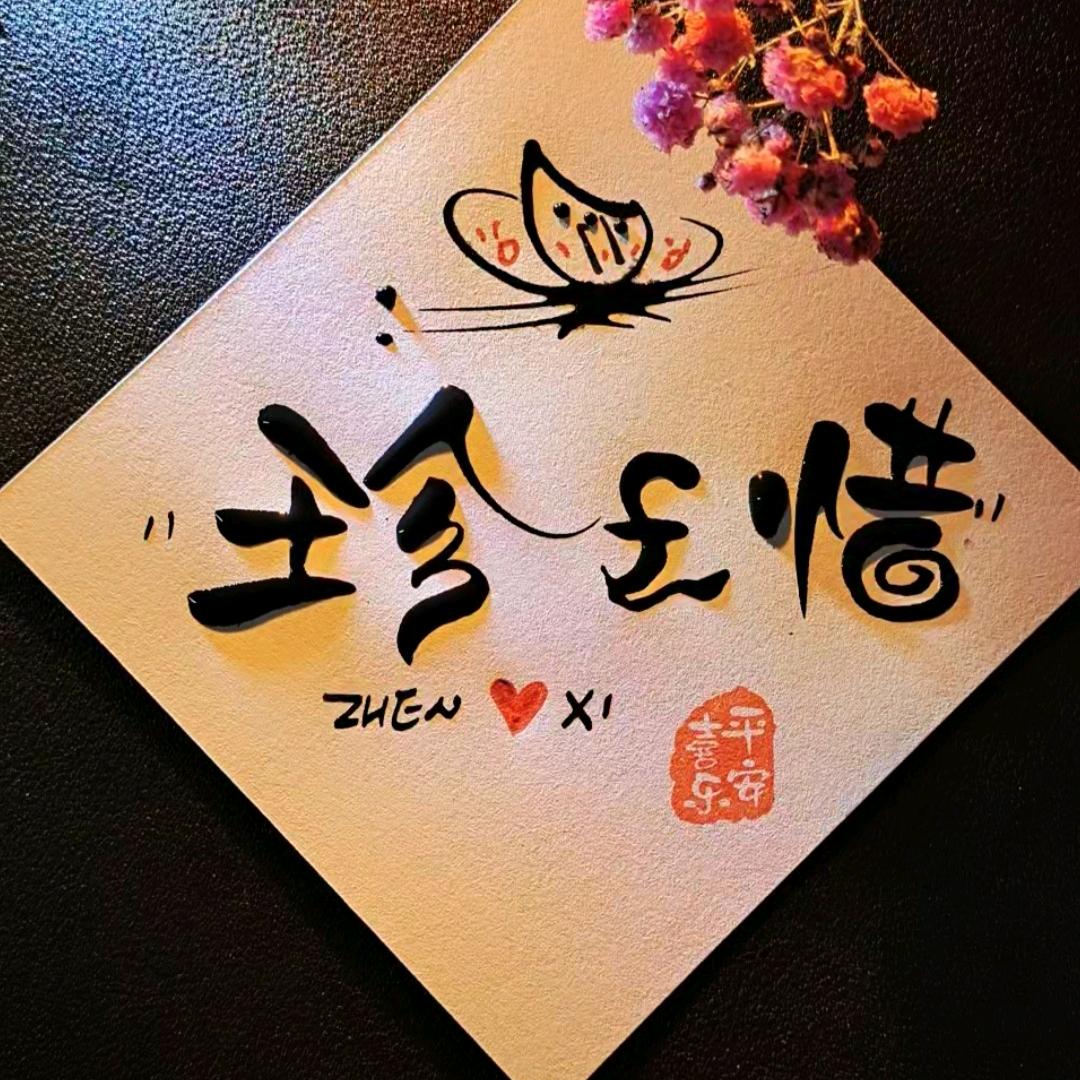 "珍惜"
ZHEN ❤ XI
平安
喜乐